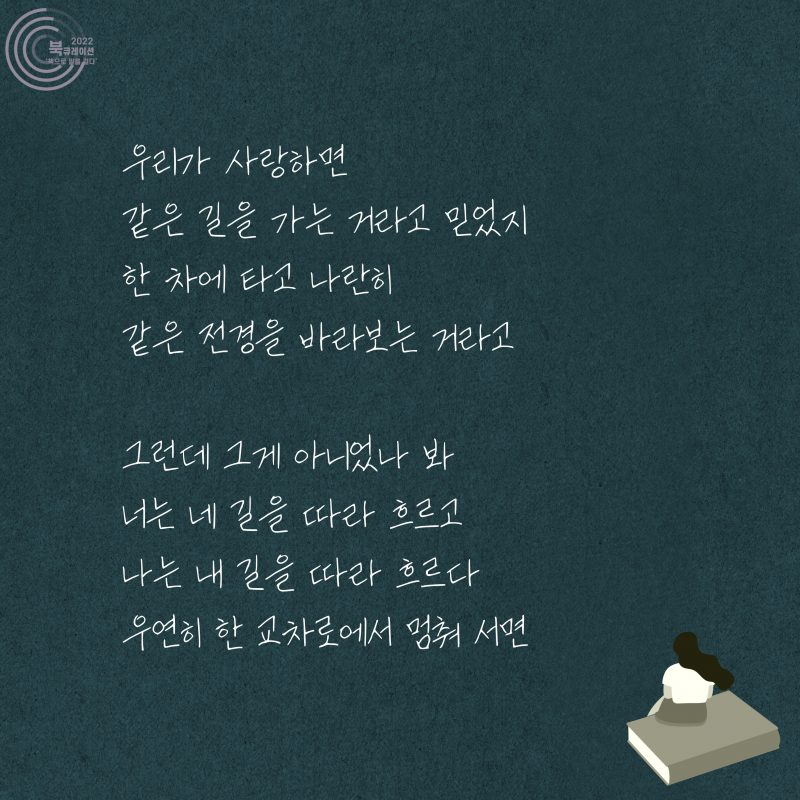 2022
북큐레이션
우리가 사랑하면
같은 길을 가는 거라고 믿었지
한 차에 타고 나란히
같은 전경을 바라보는 거라고
그런데 그게 아니었나 봐
너는 네 길을 따라 흐르고
나는 내 길을 따라 흐르다
우연히 한 교차로에서 멈춰 서면